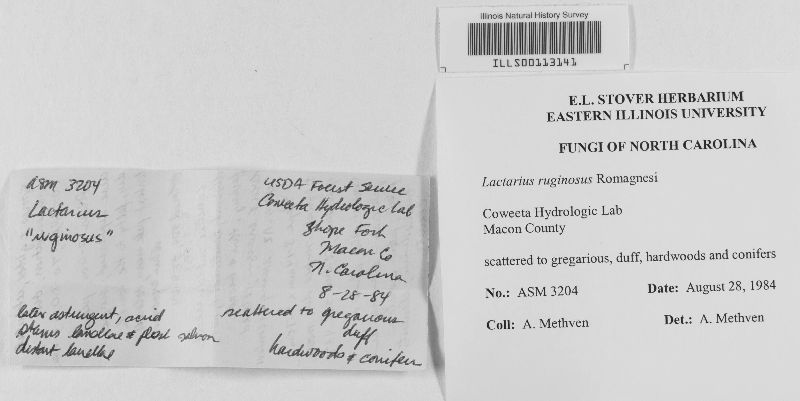 Illinois Natural History Survey
ILLS00113141
E.L. STOVER HERBARIUM
EASTERN ILLINOIS UNIVERSITY
FUNGI OF NORTH CAROLINA
Lactarius ruginosus Romagnesi
Coweeta Hydrologic Lab
Macon County
scattered to gregarious, duff, hardwoods and conifers
No.: ASM 3204 Date: August 28, 1984
Coll: A. Methven Det.: A. Methven
ASM 3204
Lactarius
"ruginosus"
USDA Forest Service
Coweeta Hydrologic Lab
Shope Fork
Macon Co
N. Carolina
8-28-84
scattered to gregarious
duff
hardwoods & conifers
latex astringent, acrid
stains lamellae & flesh salmon
distant lamellae